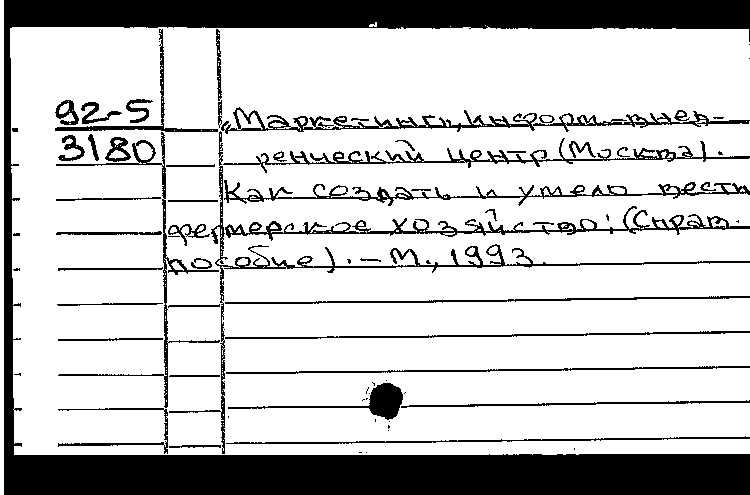 92-5
3180
«Маркетинг», информ.-внед-
ренческий центр (Москва).
Как создать и умело вести
фермерское хозяйство: (Справ.
пособие). – М., 1993.